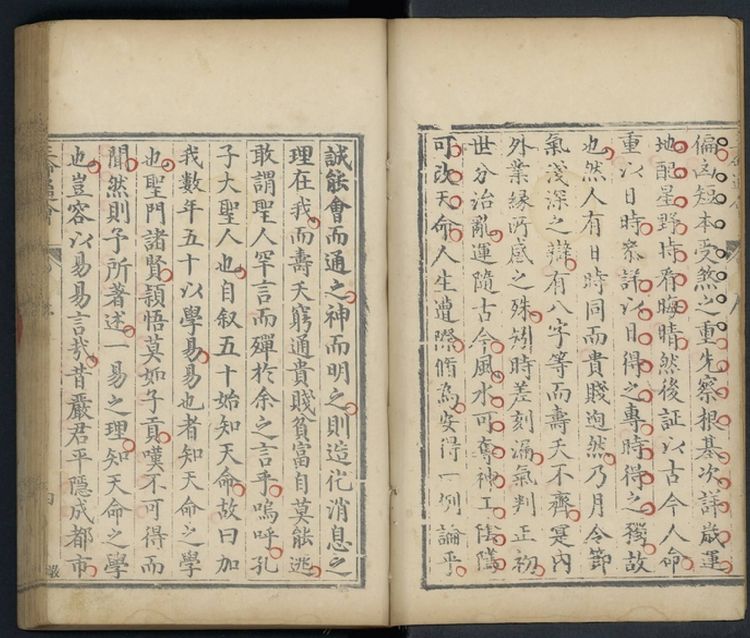 偏凶短本受煞之重先察根基次詳歲運
地配星野時看晦晴然後証以古今人命
重以日時參詳以日得之專時得之獨故
也然人有日時同而貴賤迥然乃月令節
氣淺深之辯有八字等而壽夭不齊寔內
外業緣所感之殊矧時差刻漏氣判正初
世分治亂運隨古今風水可奪神工陰隲
可改天命人生遭際脩為安得一例論乎
誠能會而通之神而明之則造化消息之
理在我而壽夭窮通貴賤貧富自莫能逃
敢謂聖人罕言而殫於余之言乎嗚呼孔
子大聖人也自叙五十始知天命故曰加
我數年五十以學易易也者知天命之學
也聖門諸賢穎悟莫如子貢嘆不可得而
聞然則予所著述一易之理知天命之學
也豈容以易易言哉昔嚴君平隱成都市